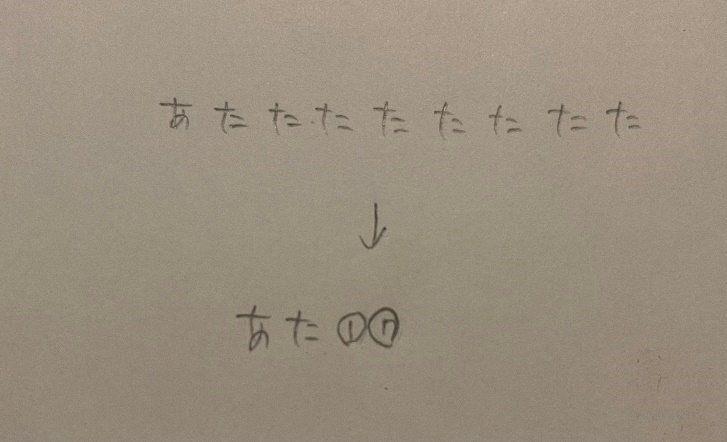 あたたたたたたたた
↓
あた①⑦